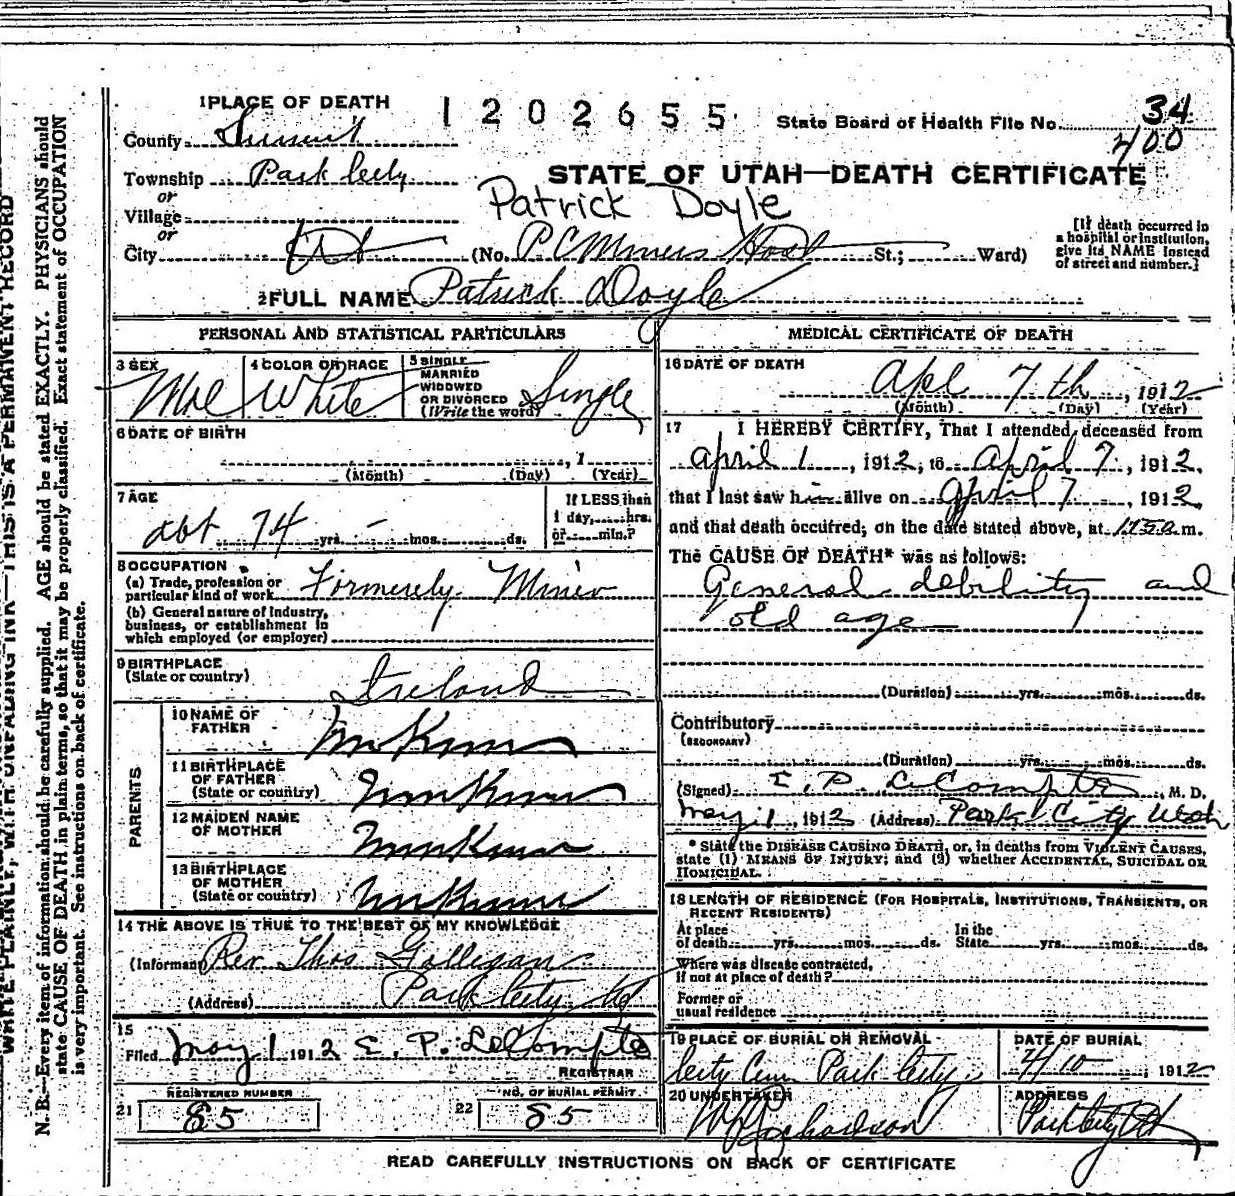 1 PLACE OF DEATH
1 2 0 2 6 5 5
State Board of Health File No. 34
400
County Summit
Township Park City
STATE OF UTAH—DEATH CERTIFICATE
or
Village
Patrick Doyle
or
City (No. P C Miners Hosp St.; Ward)
[If death occurred in
a hospital or institution,
give its NAME instead
of street and number.]
2 FULL NAME Patrick Doyle
PERSONAL AND STATISTICAL PARTICULARS
3 SEX
Mal
4 COLOR OR RACE
White
5 SINGLE
MARRIED
WIDOWED
OR DIVORCED
(Write the word)
Single
6 DATE OF BIRTH
, 1
(Month) (Day) (Year)
7 AGE
abt 74 yrs. - mos. ds.
If LESS than
1 day, hrs.
or min.?
8 OCCUPATION
(a) Trade, profession or
particular kind of work Formerely Miner
(b) General nature of Industry,
business, or establishment in
which employed (or employer)
9 BIRTHPLACE
(State or country)
Ireland
PARENTS
10 NAME OF
FATHER
11 BIRTHPLACE
OF FATHER
(State or country)
12 MAIDEN NAME
OF MOTHER
13 BIRTHPLACE
OF MOTHER
(State or country)
14 THE ABOVE IS TRUE TO THE BEST OF MY KNOWLEDGE
(Informant) Rev Thos Galligan
(Address) Park City Ut
15
Filed May 1 1912 E. P. LeCompte
REGISTRAR
REGISTERED NUMBER
21 85
NO. OF BURIAL PERMIT
22 85
MEDICAL CERTIFICATE OF DEATH
16 DATE OF DEATH
Apl 7th, 1912
(Month) (Day) (Year)
17 I HEREBY CERTIFY, That I attended deceased from
April 1, 1912, to April 7, 1912,
that I last saw him alive on April 7, 1912,
and that death occurred, on the date stated above, at m.
The CAUSE OF DEATH* was as follows:
General debility and
old age
(Duration) yrs. mos. ds.
Contributory
(SECONDARY)
(Duration) yrs. mos. ds.
(Signed) E. P. LeCompte, M. D.
May 1, 1912 (Address) Park City Utah
* State the DISEASE CAUSING DEATH, or, in deaths from VIOLENT CAUSES,
state (1) MEANS OF INJURY; and (2) whether ACCIDENTAL, SUICIDAL OR
HOMICIDAL.
18 LENGTH OF RESIDENCE (FOR HOSPITALS, INSTITUTIONS, TRANSIENTS, OR
RECENT RESIDENTS)
At place
of death yrs. mos. ds.
In the
State yrs. mos. ds.
Where was disease contracted,
if not at place of death?
Former or
usual residence
19 PLACE OF BURIAL OR REMOVAL
City Cem Park City
DATE OF BURIAL
4/10, 1912
20 UNDERTAKER
Richardson
ADDRESS
Park City Ut
READ CAREFULLY INSTRUCTIONS ON BACK OF CERTIFICATE
WRITE PLAINLY, WITH UNFADING INK—THIS IS A PERMANENT RECORD
N. B.—Every item of information should be carefully supplied. AGE should be stated EXACTLY. PHYSICIANS should
state CAUSE OF DEATH in plain terms, so that it may be properly classified. Exact statement of OCCUPATION
is very important. See instructions on back of certificate.